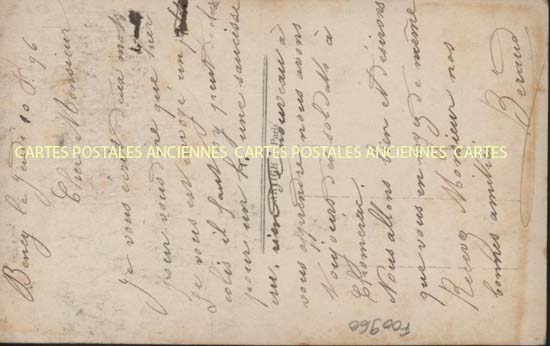 Bency le Jeudi 10 F. 96
Cher Monsieur
Je vous écris deux mots
pour vous dire que par
Je vous est envoyé un petit
colis il faut y peut
pour un et une saucisse
cru, rien de nouveau à
vous apprendre nous avons
toujours des soldats à
Chomérac.
Nous allons bien et désirons
que vous en de même
Recevez Monsieur nos
bonnes amitiés
Beraud
CARTES POSTALES ANCIENNES CARTES POSTALES ANCIENNES CARTES
F00960